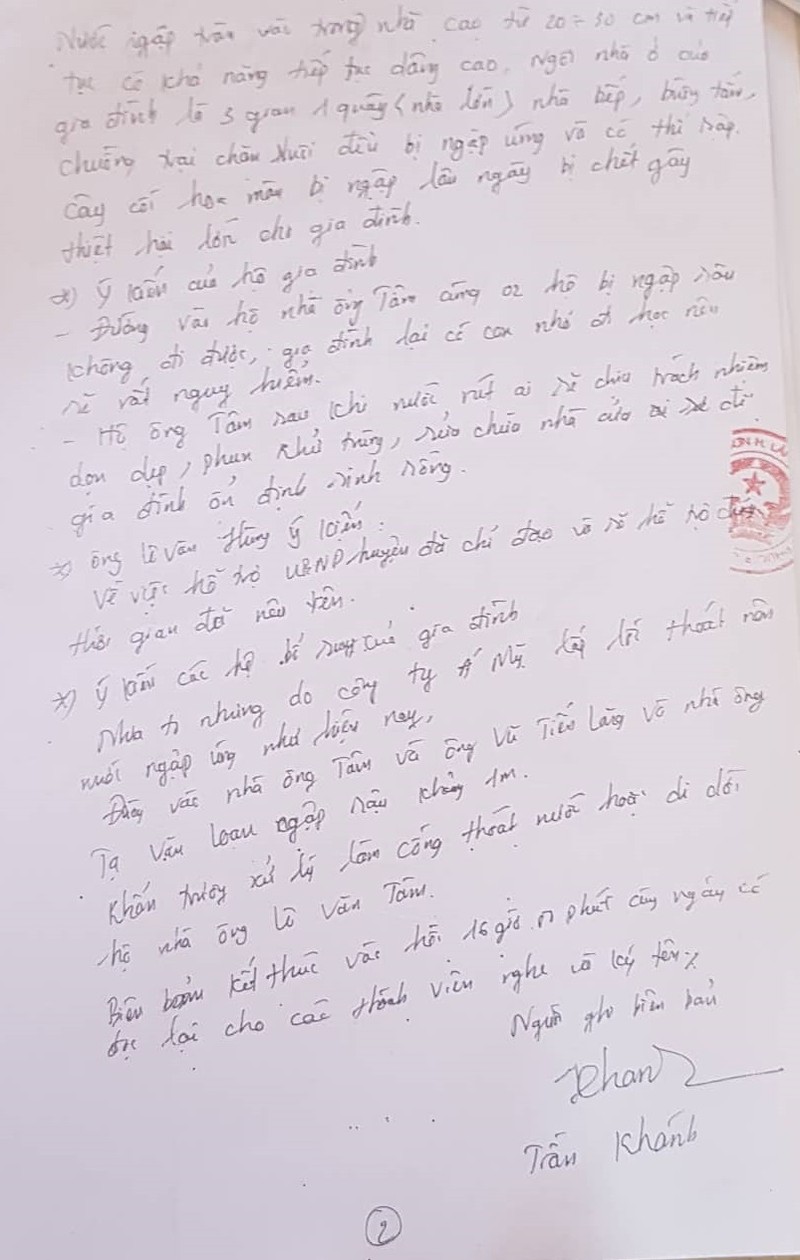 Nước ngập tràn vào trong nhà cao từ 20 ÷ 30 cm và tiếp
tục có khả năng tiếp tục dâng cao. Ngôi nhà ở của
gia đình là 3 gian 1 quầy (nhà lớn) nhà bếp, buồng tắm,
chuồng trại chăn nuôi đều bị ngập úng và có thể sập.
Cây cối hoa màu bị ngập lâu ngày bị chết gây
thiệt hại lớn cho gia đình.
*) Ý kiến của hộ gia đình
- Đường vào hộ nhà ông Tâm cùng 02 hộ bị ngập sâu
không đi được, gia đình lại có con nhỏ đi học nên
sẽ rất nguy hiểm.
- Hộ ông Tâm sau khi nước rút ai sẽ chịu trách nhiệm
dọn dẹp, phun khử trùng, sửa chữa nhà cửa để
gia đình ổn định sinh sống.
*) Ông Lê Văn Hùng ý kiến:
Về việc hỗ trợ UBND huyện đã chỉ đạo và sẽ hỗ trợ
thời gian nêu trên.
*) Ý kiến các hộ gia đình
nhưng do công ty Á Mỹ lấp lối thoát nên
nước ngập úng như hiện nay,
Đường vào nhà ông Tâm và ông Vũ Tiến Lãng và nhà ông
Tạ Văn Loan ngập sâu khoảng 1m.
Khẩn trương xử lý làm cống thoát nước hoặc di dời
hộ nhà ông Lê Văn Tâm.
Biên bản kết thúc vào hồi 16 giờ phút cùng ngày có
đọc lại cho các thành viên nghe và ký tên ./.
Người ghi biên bản
Khanh
Trần Khánh
2